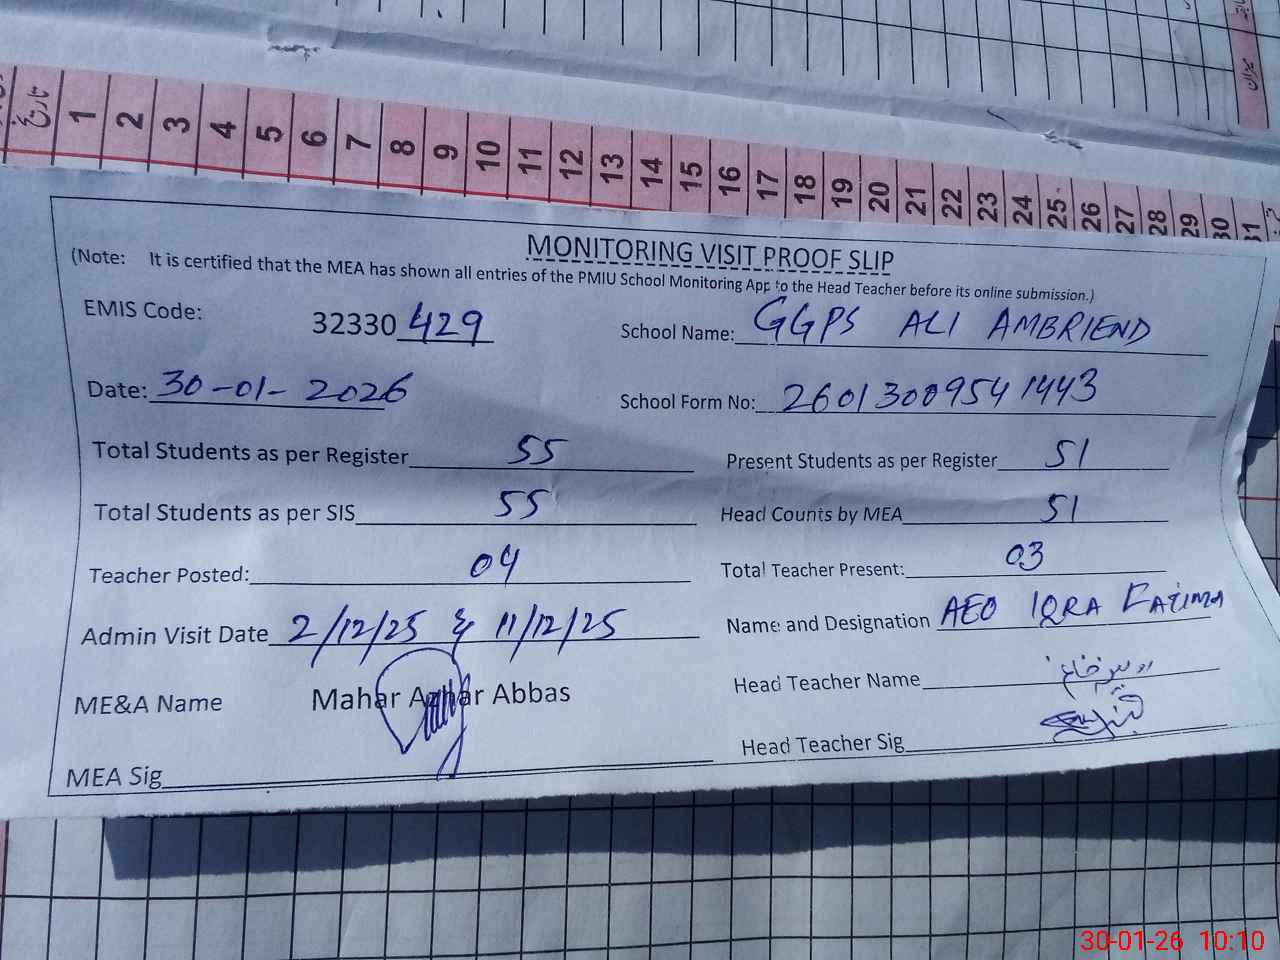 تاریخ 1 2 3 4 5 6 7 8 9 10 11 12 13 14 15 16 17 18 19 20 21 22 23 24 25 26 27 28 29 30 31
MONITORING VISIT PROOF SLIP
(Note: It is certified that the MEA has shown all entries of the PMIU School Monitoring App to the Head Teacher before its online submission.)
EMIS Code: 32330 429 School Name: GGPS ALI AMBRIEND
Date: 30-01-2026 School Form No: 26013009541443
Total Students as per Register 55 Present Students as per Register 51
Total Students as per SIS 55 Head Counts by MEA 51
Teacher Posted: 04 Total Teacher Present: 03
Admin Visit Date 2/12/25 & 11/12/25 Name and Designation AEO IQRA FATIMA
ME&A Name Mahar Azhar Abbas Head Teacher Name
MEA Sig Head Teacher Sig
30-01-26 10:10